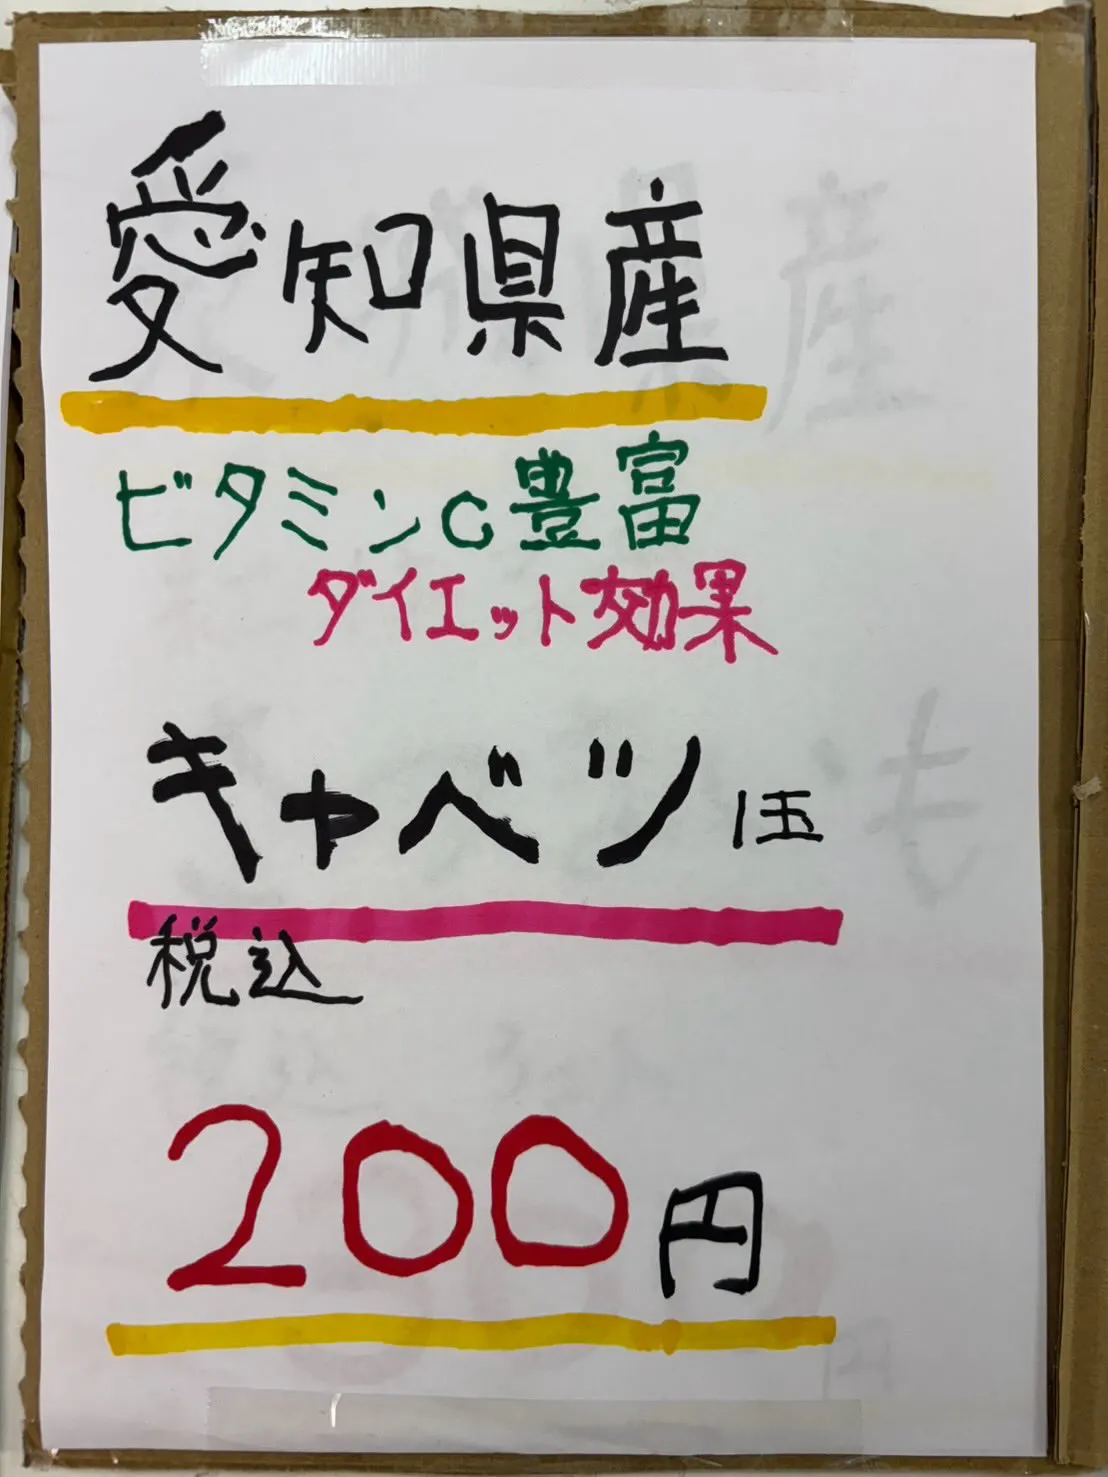 愛知県産
ビタミンC豊富
ダイエット効果
キャベツ 1玉
税込
200円